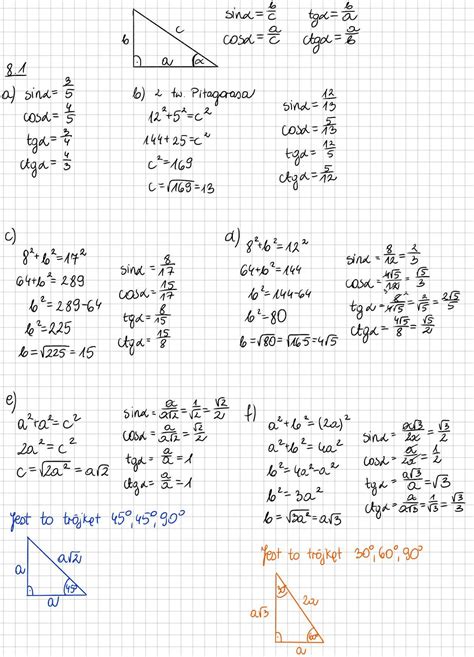 sinα = b/c tgα = b/a
cosα = a/c ctgα = a/b
b c a α
8.1
a) sinα = 3/5
cosα = 4/5
tgα = 3/4
ctgα = 4/3
b) z tw. Pitagorasa
12² + 5² = c²
144 + 25 = c²
c² = 169
c = √169 = 13
sinα = 12/13
cosα = 5/13
tgα = 12/5
ctgα = 5/12
c)
8² + b² = 17²
64 + b² = 289
b² = 289 - 64
b² = 225
b = √225 = 15
sinα = 8/17
cosα = 15/17
tgα = 8/15
ctgα = 15/8
d)
8² + b² = 12²
64 + b² = 144
b² = 144 - 64
b² = 80
b = √80 = √16·5 = 4√5
sinα = 8/12 = 2/3
cosα = 4√5/12 = √5/3
tgα = 8/4√5 = 2/√5 = 2√5/5
ctgα = 4√5/8 = √5/2
e)
a² + a² = c²
2a² = c²
c = √2a² = a√2
sinα = a/a√2 = 1/√2 = √2/2
cosα = a/a√2 = √2/2
tgα = a/a = 1
ctgα = a/a = 1
Jest to trójkąt 45°, 45°, 90°
a a√2 a 45°
f)
a² + b² = (2a)²
a² + b² = 4a²
b² = 4a² - a²
b² = 3a²
b = √3a² = a√3
sinα = a√3/2a = √3/2
cosα = a/2a = 1/2
tgα = a√3/a = √3
ctgα = a/a√3 = 1/√3 = √3/3
Jest to trójkąt 30°, 60°, 90°
30° a√3 2a a 60°